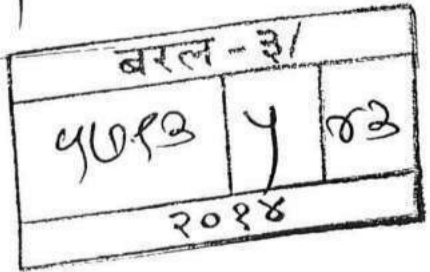 बरल - ३/
५७१३ ५ ४३
२०१४